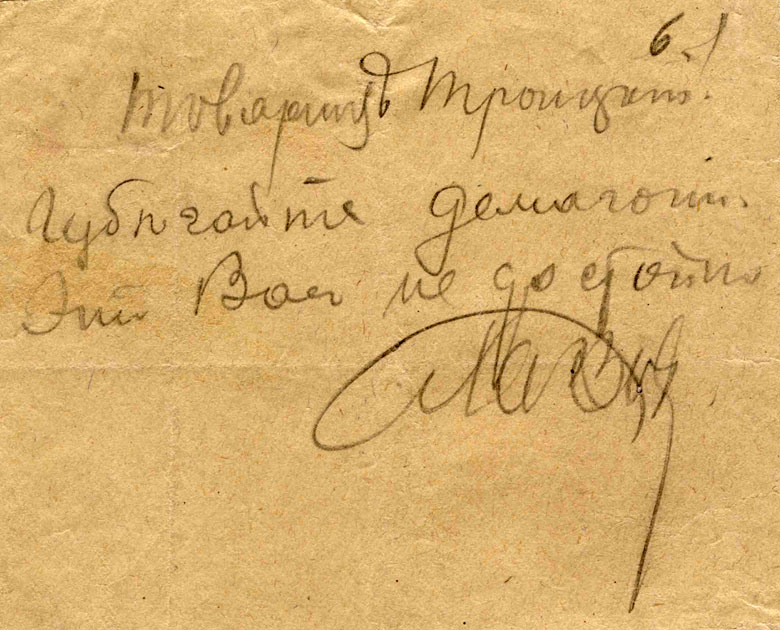 6.1
Товарищъ Троицкiй.
избѣгайте демагогiи.
Это Васъ не достойно